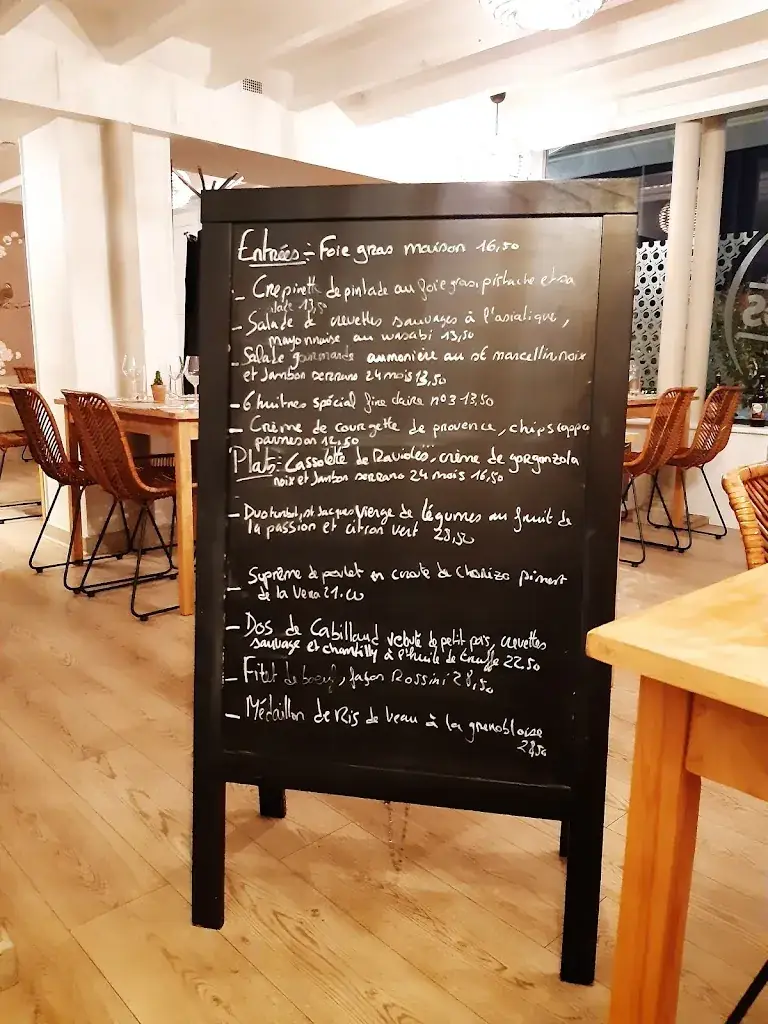 Entrées :- Foie gras maison 16,50
- Crepinette de pintade au foie gras, pistache et sa
13,50
- Salade de crevettes sauvages à l'asiatique,
mayonnaise au wasabi 13,50
- Salade gourmande ammonière au st marcellin noix
et Jambon serrano 24 mois 13,50
- 6 huitres spécial fine claire n°3 13,50
- Crème de courgette de provence, chips coppa
parmesan 12,50
Plats :- Cassolette de Ravioles, crème de gorgonzola
noix et Jambon serrano 24 mois 16,50
- Duo turbot, st Jacques Vierge de légumes au fruit de
la passion et citron vert 23,50
- Suprême de poulet en croute de Chorizo piment
de la Vera 21.00
- Dos de Cabillaud velouté de petit pois, crevettes
sauvage et chantilly à l'huile de truffe 22.50
- Filet de boeuf, façon Rossini 28,50
- Médaillon de Ris de veau à la grenobloise
28,50